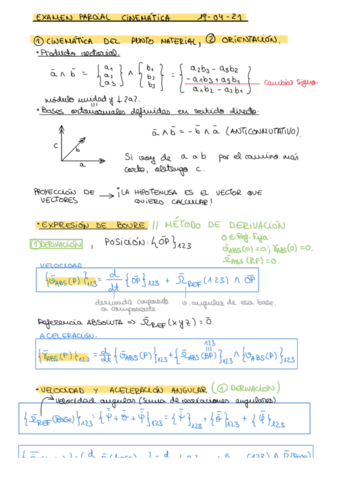 EXAMEN PARCIAL CINEMÁTICA 19-04-21
① CINEMÁTICA DEL PUNTO MATERIAL, ② ORIENTACIÓN.
• Producto vectorial.
ā ∧ b̄ = {a1 a2 a3} ∧ {b1 b2 b3} = {a2b3 - a3b2
-a1b3 + a3b1 cambiar signo
a1b2 - a2b1}
módulo unidad y ⊥ 2a2.
• Bases ortonormales definidas en sentido directo.
ā ∧ b̄ = - b̄ ∧ ā (ANTICONMUTATIVO).
c b
a
Si voy de a a b por el camino más
corto, obtengo c.
PROYECCIÓN DE → ¡LA HIPOTENUSA ES EL VECTOR QUE
VECTORES QUIERO CALCULAR!
• EXPRESIÓN DE BOURE // MÉTODO DE DERIVACIÓN
① DERIVACIÓN, POSICIÓN: {OP}123
O ∈ Reg. Fija.
VELOCIDAD
{v̄ABS(P)}123 = d/dt {OP}123 + Ω̄REF(123) ∧ OP
derivada componente a componente. Ω angular de esa base.
Referencia ABSOLUTA ⇒ Ω̄REF(xyz) = 0̄.
ACELERACIÓN.
= d/dt {v̄ABS(P)}123 + {Ω̄ABS(BP)}123 ∧ {v̄ABS(P)}123
• VELOCIDAD Y ACELERACIÓN ANGULAR (① DERIVACIÓN)
↳ Velocidad angular (suma de rotaciones angulares)
{Ω̄REF(Base)}123 = {ψ̇ + θ̇ + φ̇}123 = {ψ̇}123 + {θ̇}123 + {φ̇}123